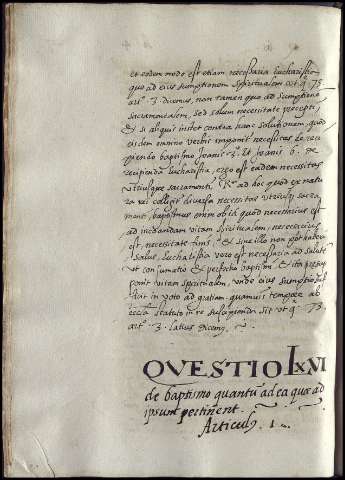 et eodem modo est etiam necessaria Eucharistia
quo ad eius sumptionem spiritualem ut q. 73
artº. 3. dicemus, non tamen quo ad sumptionē
sacramentalem, sed solum necessitate præcepti,
& si aliqui instet contra hanc solutionem, quod
eisdem omnino verbis imponit necessitas de reci
piendo baptismo Joanis 3. et Joanis 6. de
recipienda eucharistia, ergo est eadem necessitas
utriusque sacramenti, Rº ad hoc quod ex natu
ra rei colligit diversa necessitas utriusque sacra
menti, baptismus enim ob id quod necessarius est
ad inchoandam vitam spiritualem, necessarius
est, necessitate finis, & sine illo non pot haberi
salus, Eucharistia vero est necessaria ad salutē
ut consumatio et perfectio baptismi, & ita
ponit vitam spiritualem, unde eius sumptio
in voto ad gratiam quamvis tempore ab
ecclesia statuto in re suscipienda sit ut q. 73.
artº. 3. latius dicemꝰ.
QVESTIO LXVI
de baptismo quantū ad ea quæ ad
ipsum pertinent.
Articulꝰ. 1.